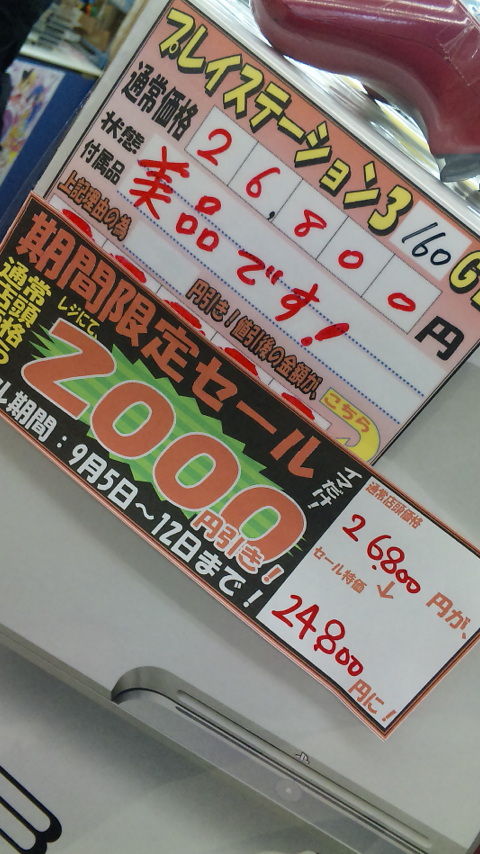 プレイステーション3 160G
通常価格 26,800円
状態
付属品
美品です!
上記理由の為
円引き!値引後の金額が、こちら
期間限定セール
通常
店頭
価格
レジにて
2000円引き!
イマだけ!
ル期間:9月5日~12日まで!
通常店頭価格
26,800円が、
セール特価
↓
24,800円に!